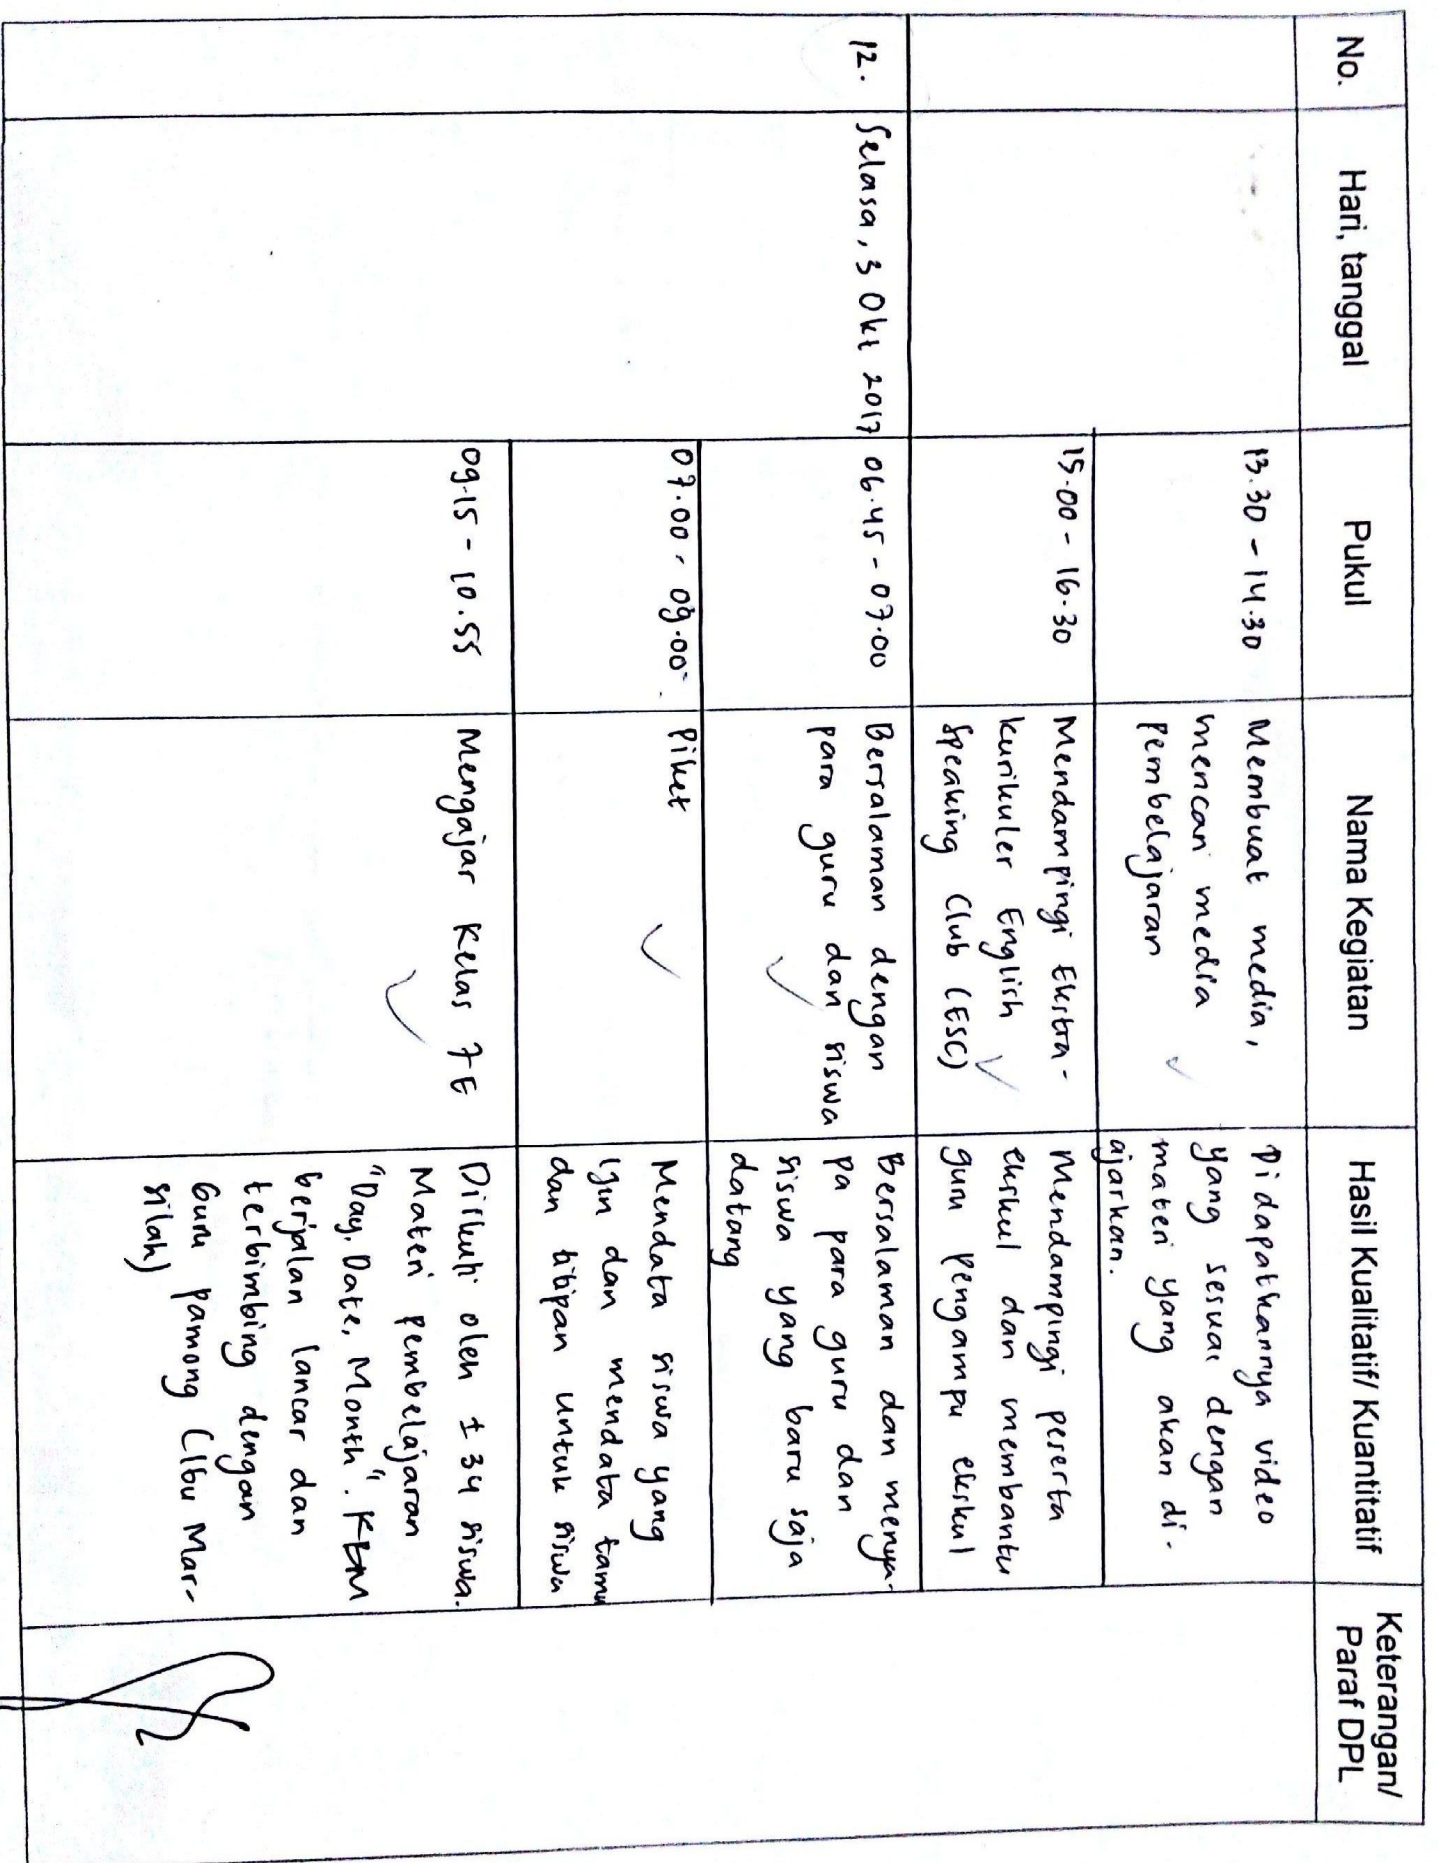 No.
Hari, tanggal
Pukul
Nama Kegiatan
Hasil Kualitatif/ Kuantitatif
Keterangan/
Paraf DPL
13.30 - 14.30
Membuat media,
mencari media
pembelajaran
Didapatkannya video
yang sesuai dengan
materi yang akan di-
ajarkan.
15.00 - 16.30
Mendampingi Ekstra-
kurikuler English
Speaking Club (ESC)
Mendampingi peserta
ekskul dan membantu
guru pengampu ekskul
12.
Selasa, 3 Okt 2017
06.45 - 07.00
Bersalaman dengan
para guru dan siswa
Bersalaman dan menya-
pa para guru dan
siswa yang baru saja
datang
07.00 - 09.00
Piket
Mendata siswa yang
ijin dan mendata tamu
dan titipan untuk siswa
09.15 - 10.55
Mengajar Kelas 7E
Diikuti oleh ± 34 siswa.
Materi pembelajaran
"Day, Date, Month". KBM
berjalan lancar dan
terbimbing dengan
Guru pamong (Ibu Mar-
silah)